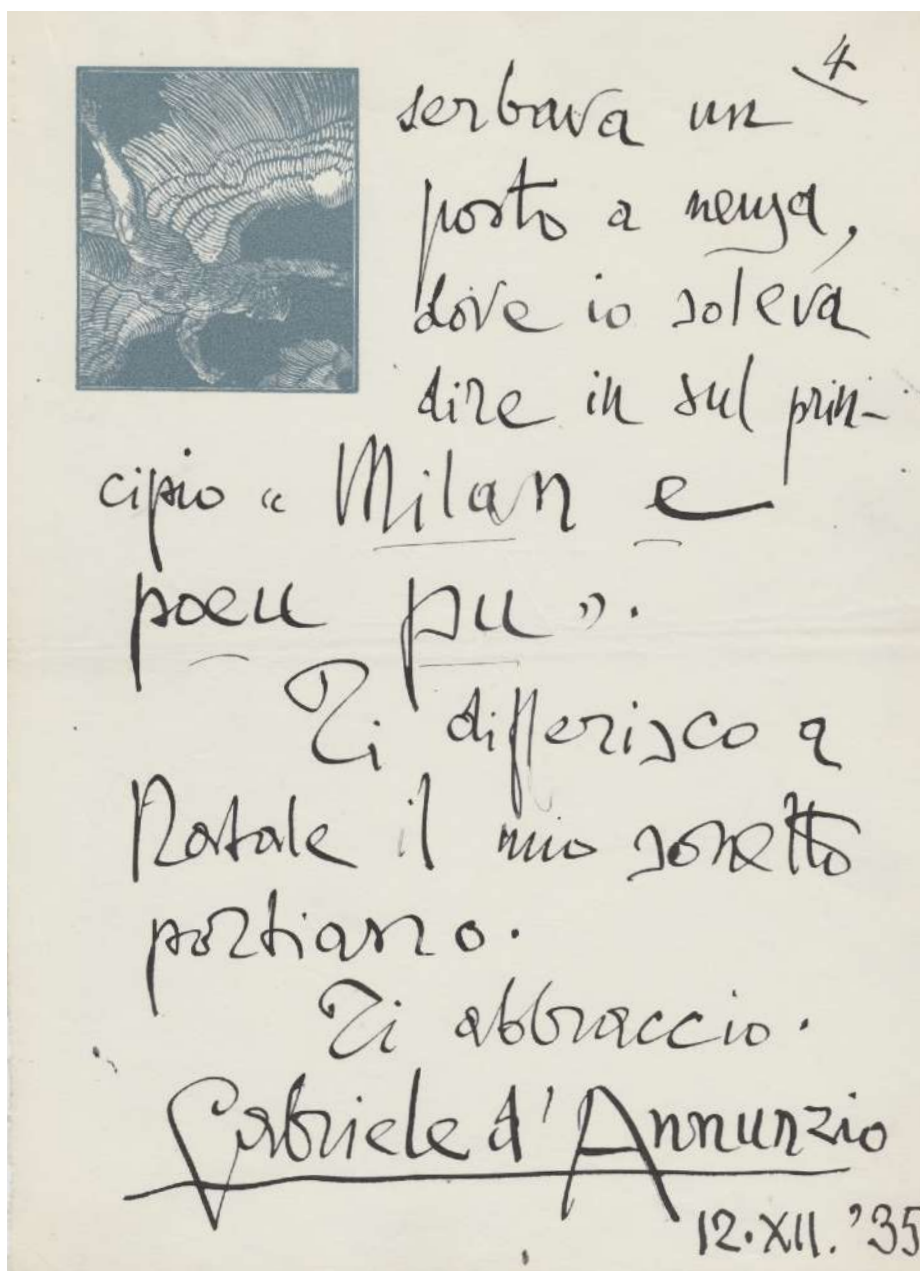 4
serbava un
posto a mensa,
dove io soleva
dire in sul prin-
cipio « Milan e
poeu pu ».
Ti differisco a
Natale il mio sonetto
portiano.
Ti abbraccio.
Gabriele d'Annunzio
12.XII.'35